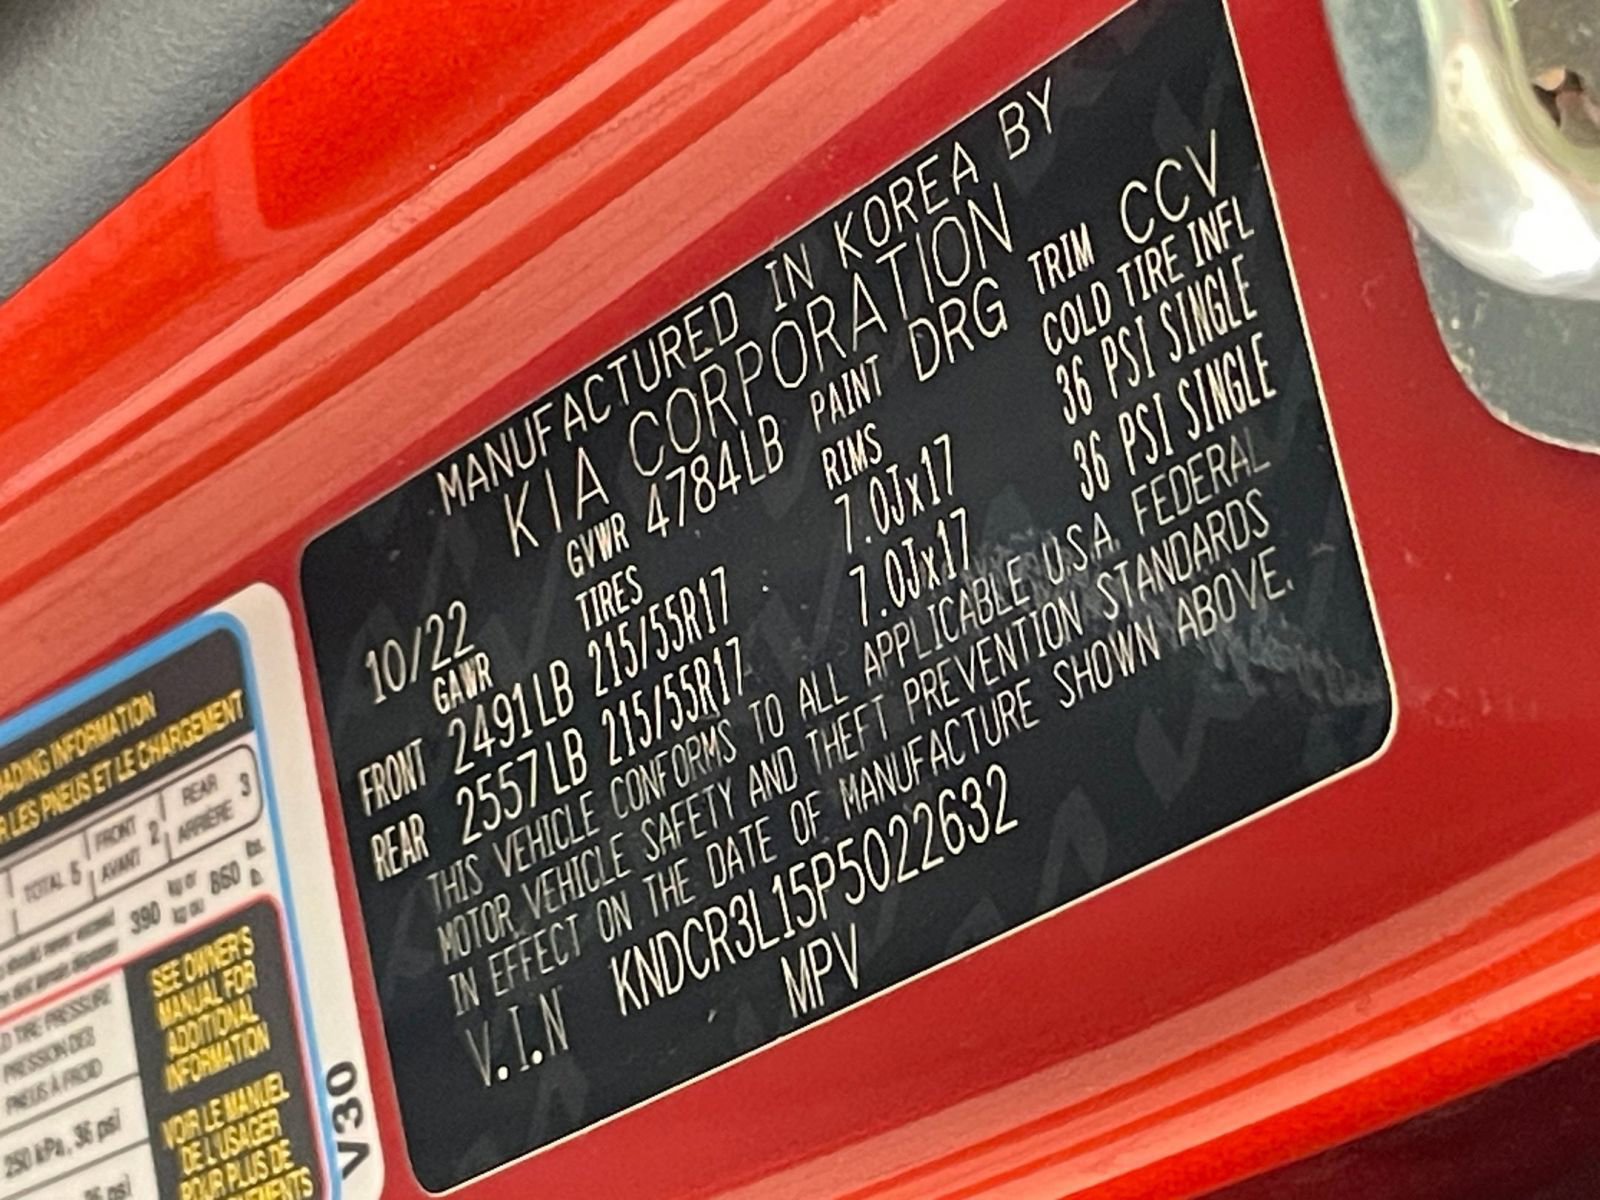 MANUFACTURED IN KOREA BY
KIA CORPORATION
10/22 GVWR 4784LB PAINT DRG TRIM CCV
GAWR TIRES RIMS COLD TIRE INFL
FRONT 2491LB 215/55R17 7.0Jx17 36 PSI SINGLE
REAR 2557LB 215/55R17 7.0Jx17 36 PSI SINGLE
THIS VEHICLE CONFORMS TO ALL APPLICABLE U.S.A. FEDERAL
MOTOR VEHICLE SAFETY AND THEFT PREVENTION STANDARDS
IN EFFECT ON THE DATE OF MANUFACTURE SHOWN ABOVE.
V.I.N KNDCR3L15P5022632
MPV
INFORMATION
LES PNEUS ET LE CHARGEMENT
TOTAL 5 FRONT AVANT 2 REAR ARRIÈRE 3
should never exceed 390 kg or 860 lbs.
kg ou lb.
TIRE PRESSURE
PRESSION DES
PNEUS À FROID
250 kPa, 36 psi
psi
SEE OWNER'S
MANUAL FOR
ADDITIONAL
INFORMATION
VOIR LE MANUEL
DE L'USAGER
POUR PLUS DE
V30